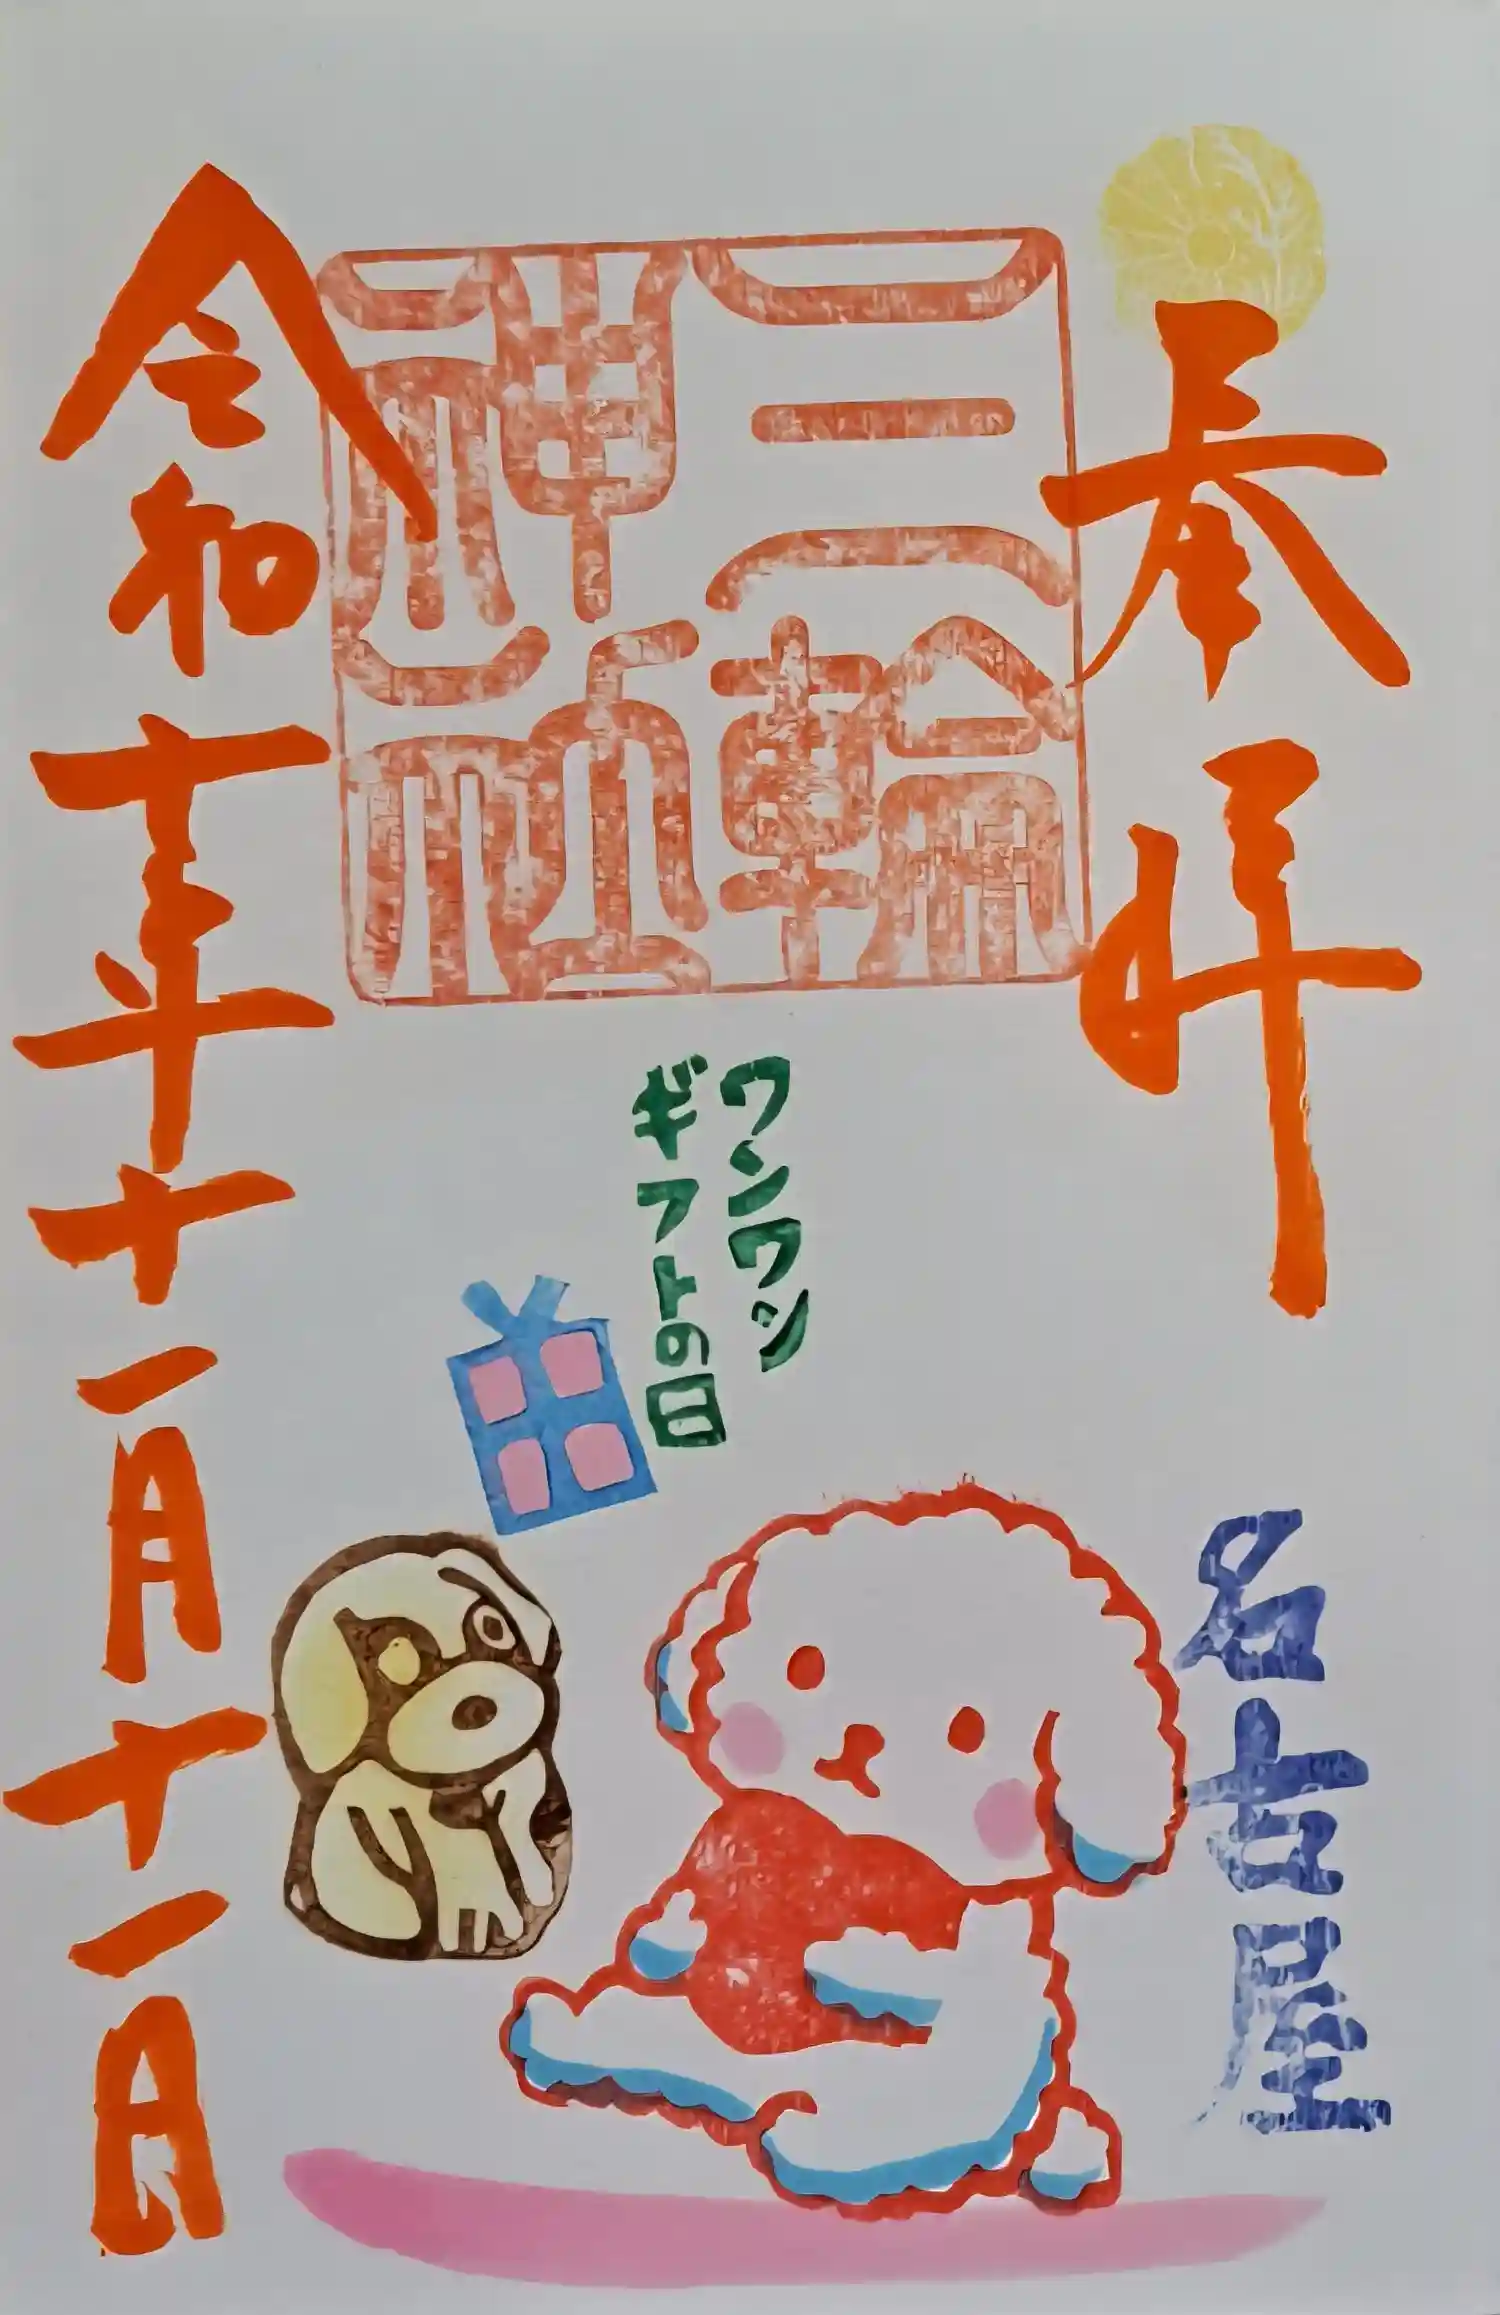 奉拝
三輪
神社
ワンワン
ギフトの日
名古屋
令和七年十一月十一日